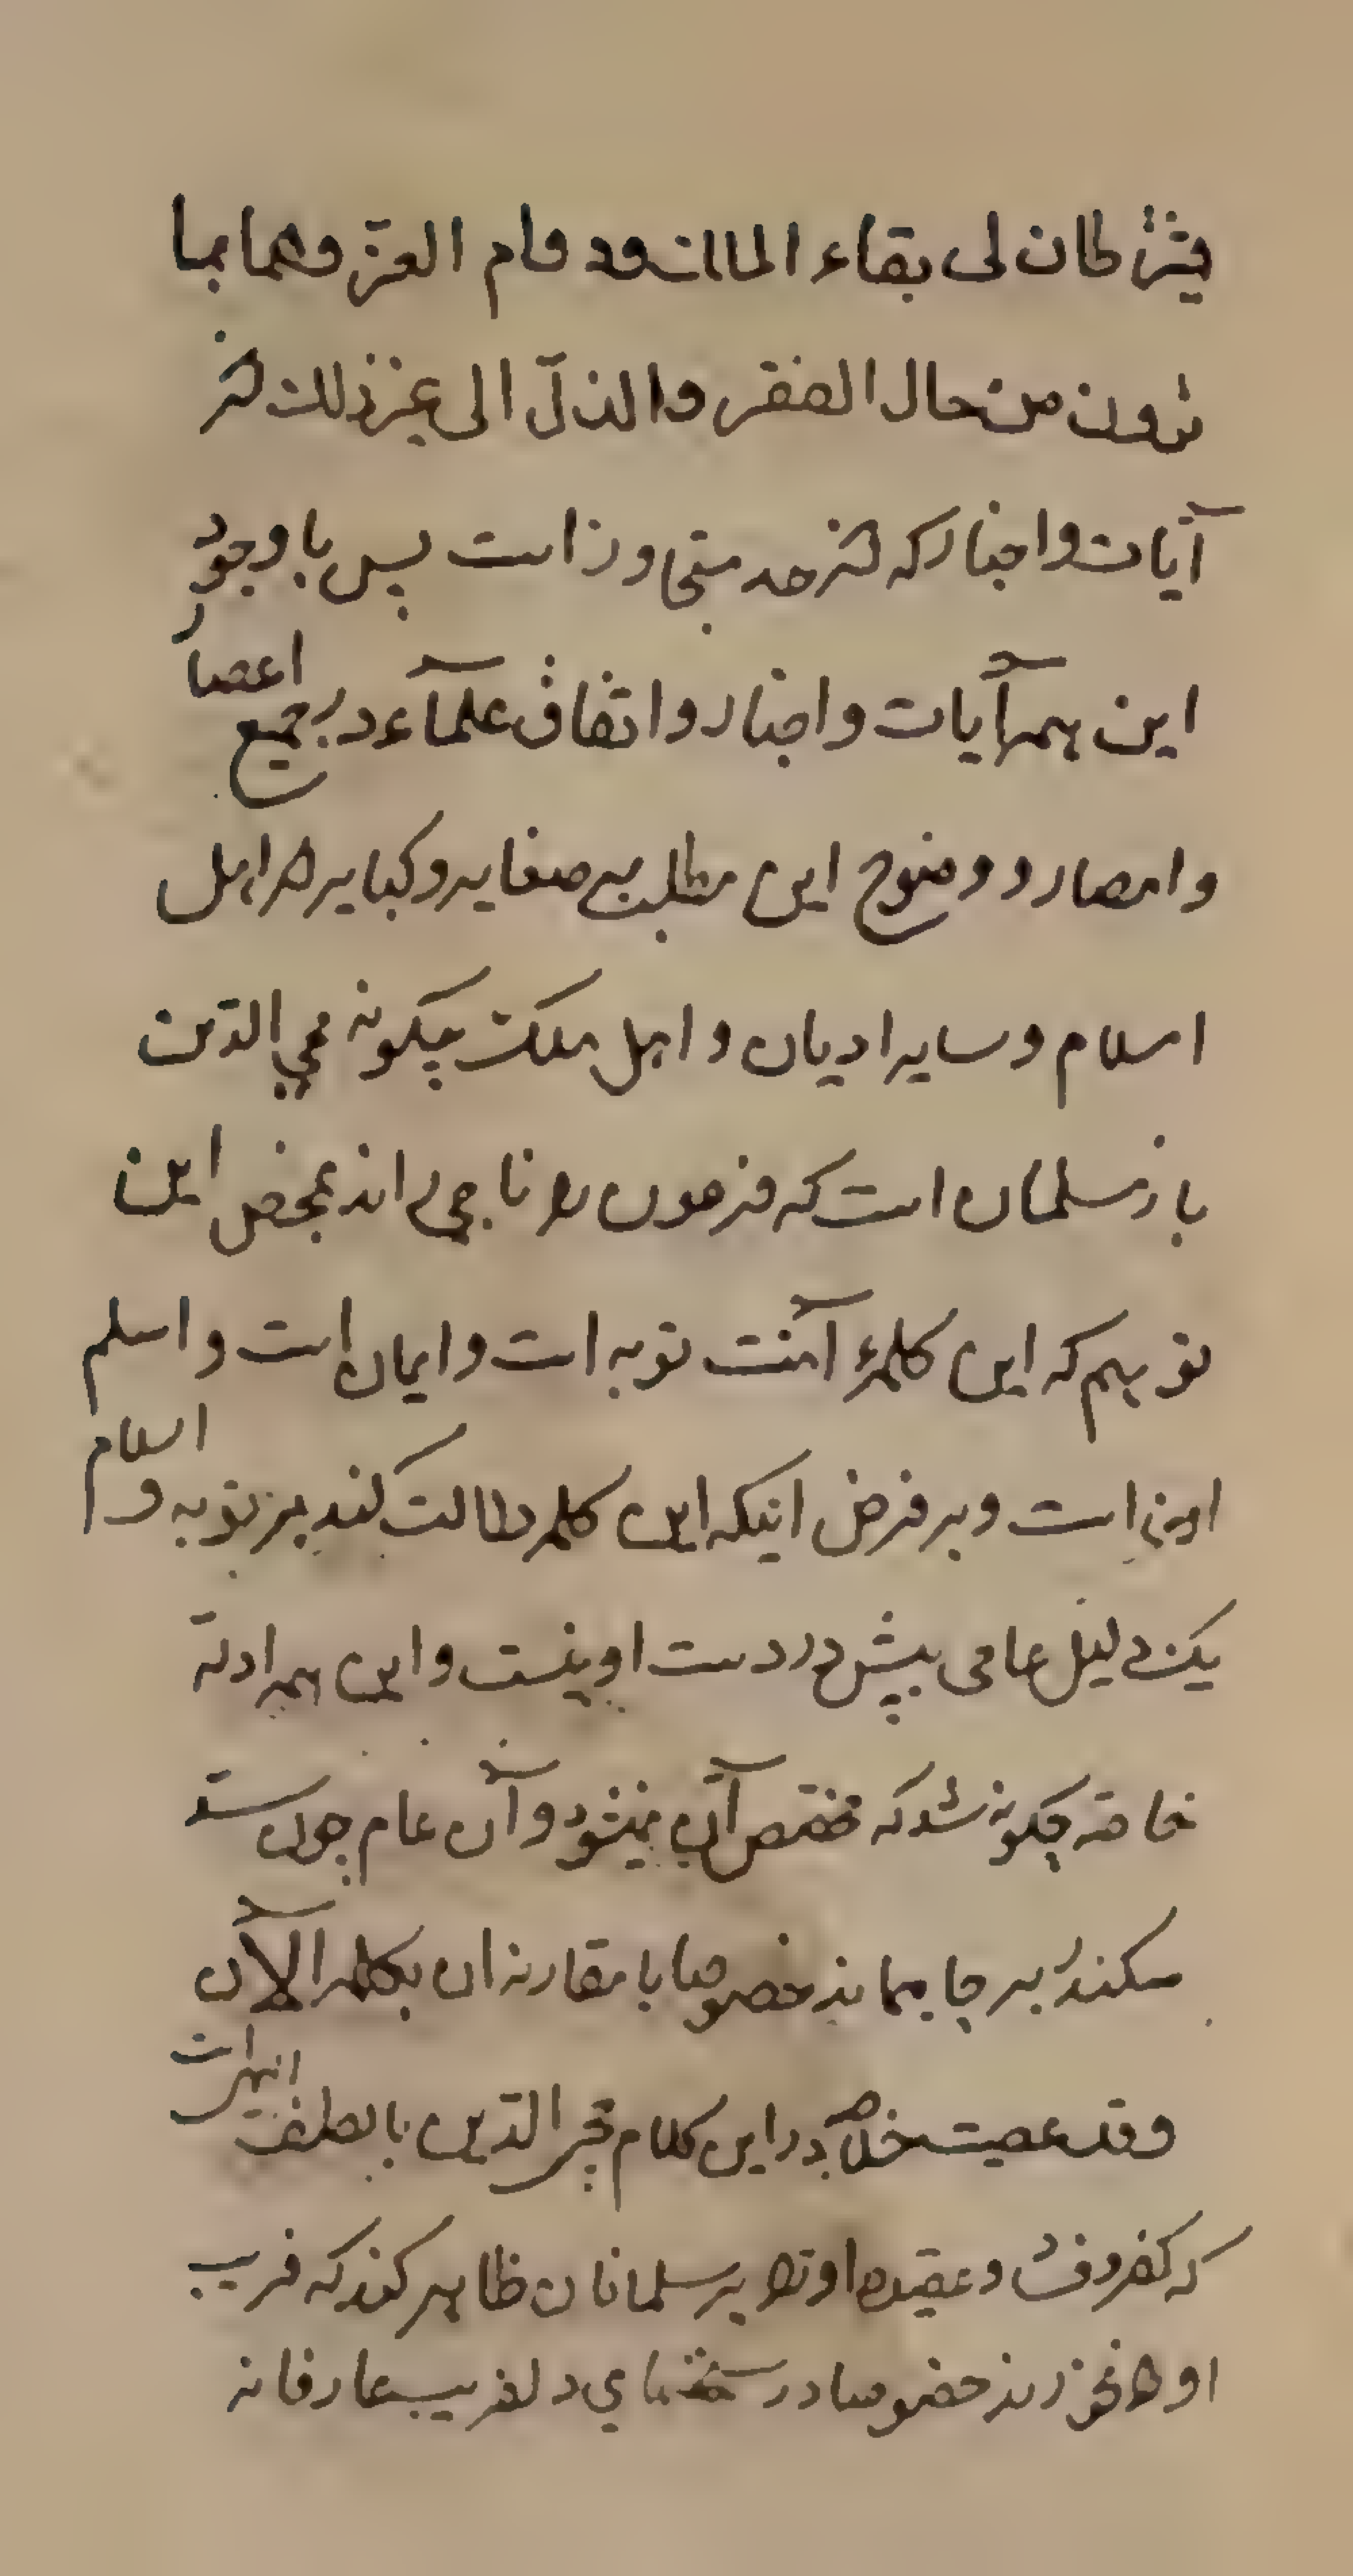 یشرطان لی بقاء الملک ودوام العزّ وهما بما
ترون من حال الفقر والذلّ الی غیر ذلک من
آیات واخبار که از حد متجاوز است پس با وجود
این همه آیات واخبار واتفاق علمآء در جمیع اعصار
وامصار و وضوح این مطلب بر صغایر وکبایر هر اهل
اسلام وسایر ادیان واهل ملک چگونه محیی الدّین
باز مسلمان است که فرعون را ناجی داند بمحض این
توهم که این کلمهٔ آمنت توبه است وایمان است واسلم
است وبر فرض اینکه این کلمه دلالت کند بر توبه واسلام
یک دلیل عامی بیش در دست او نیست واین همه ادلّه
خاصّه چگونه شد که مخصّص آن نمیشود وآن عام چون سدّ
سکندر بر جا بماند خصوصا با مقارنه ان بکلمه آلآن
وقد عصیت خلاصه در این کلام محیی الدّین بالطف انیست
که کفر وفسق وعقیده او را بر مسلمانان ظاهر کند که فریب
او را نخورند خصوصا در سخنهای دلفریب عارفانه